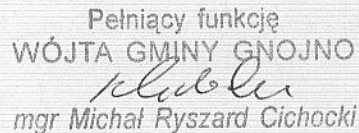 Pełniący funkcję
WÓJTA GMINY GNOJNO
mgr Michał Ryszard Cichocki